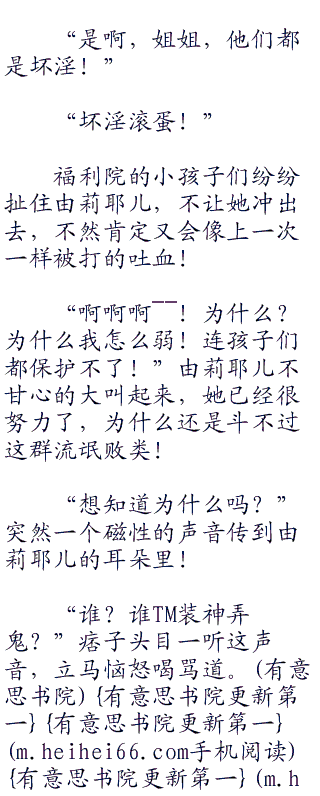 “是啊，姐姐，他们都
是坏淫！”
“坏淫滚蛋！”
福利院的小孩子们纷纷
扯住由莉耶儿，不让她冲出
去，不然肯定又会像上一次
一样被打的吐血！
“啊啊啊——！为什么？
为什么我怎么弱！连孩子们
都保护不了！”由莉耶儿不
甘心的大叫起来，她已经很
努力了，为什么还是斗不过
这群流氓败类！
“想知道为什么吗？”
突然一个磁性的声音传到由
莉耶儿的耳朵里！
“谁？谁TM装神弄
鬼？”痞子头目一听这声
音，立马恼怒喝骂道。(有意
思书院) {有意思书院更新第
一} {有意思书院更新第一}
(m.heihei66.com手机阅读)
{有意思书院更新第一} (m.h